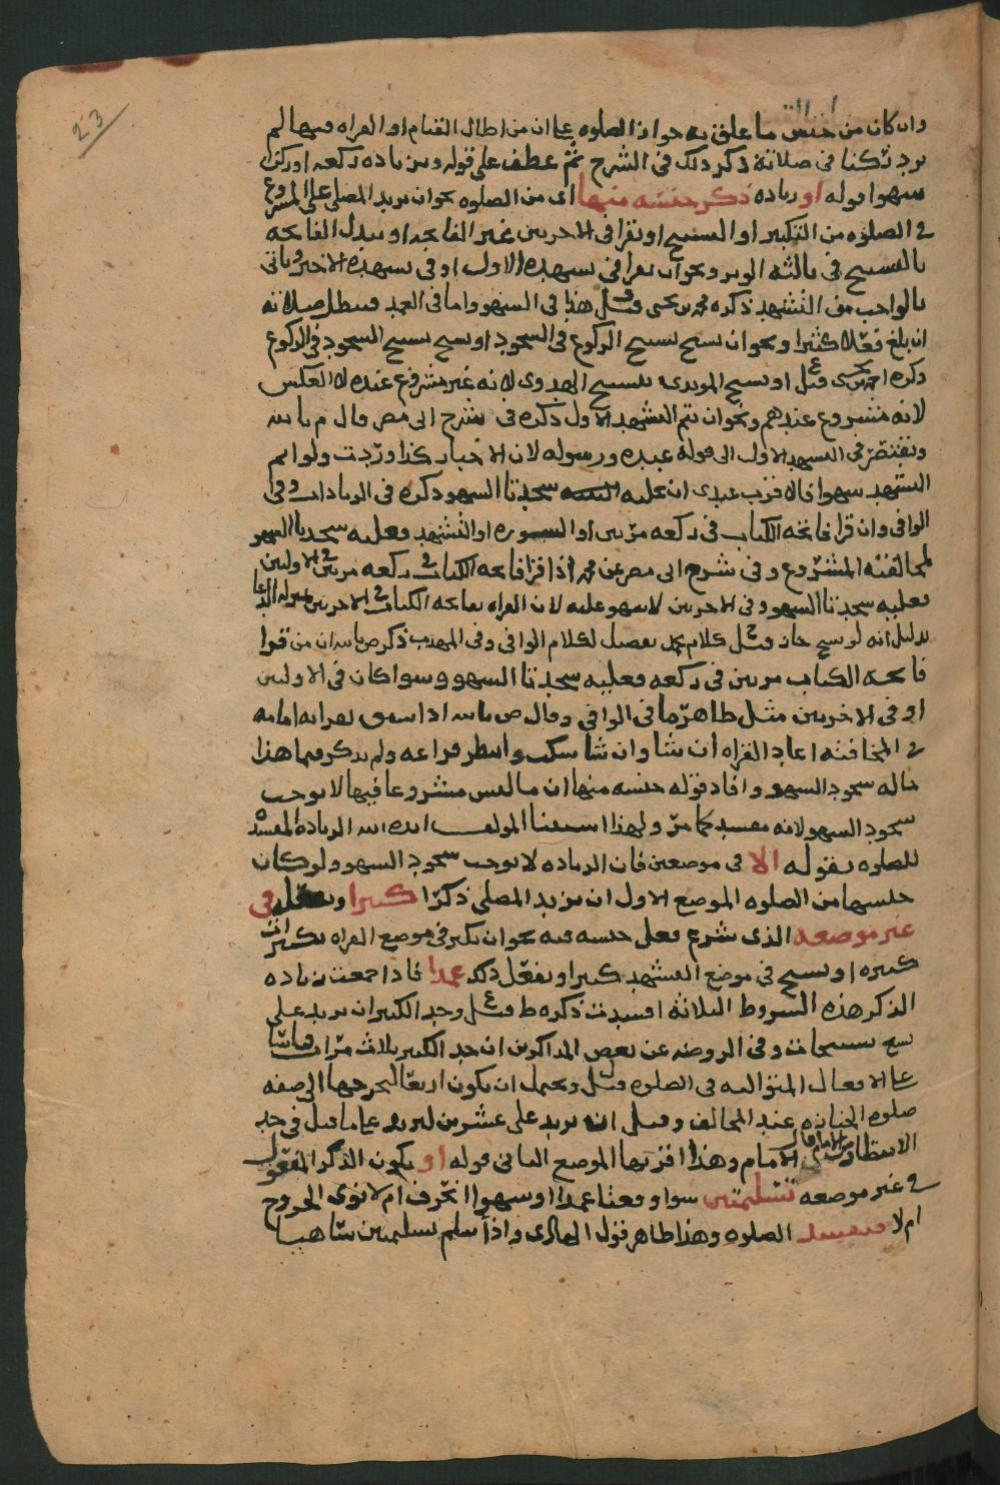 23
وان كان من جنس ما علق به جواز الصلوه عا ان من اطال القيام او القراه فيهما لم
يرد ركنا في صلاته ذكر ذلك في الشرح ثم عطف على قوله ومن ياده ركعه او ركن
سهوا قوله او زياده ذكر جنسه منها اى من الصلوه نحو ان يريد المصلى على المشروع
في الصلوه من التكبير او التسبيح او يقرا في الاخريين غير الفاتحه او يبدل الفاتحه
بالتسبيح في ثالثه الوتر ونحو ان يقرا في تشهده الاول او في تشهده الاخير وياتى
بالواجب من التشهد ذكره محمد بن يحيى وقيل هذا في السهو واما في العمد فيبطل صلاته
ان بلغ فعلا كثيرا ونحو ان يسبح تسبيح الركوع في السجود او يسبح تسبيح السجود في الركوع
ذكره احمد بن يحيى قيل او يسبح المويدى بتسبيح الهدوى لانه غير مشروع عنده لا العكس
لانه مشروع عندهم ونحو ان يتم التشهد الاول ذكره في شرح ابى مضر وقال م بالله
ويقتصر في التشهد الاول الى قوله عبده ورسوله لان الاخبار كذا وردت ولو اتم
التشهد سهوا فالاقرب عندى ان عليه سجدتا السهو ذكره في الزيادات وفي
الوافي وان قرا فاتحه الكتاب في ركعه مرتين او السوره او التشهد فعليه سجدتا السهو
لمخالفته المشروع وفي شرح ابى مضر عن محمد اذا قرا فاتحه الكتاب في ركعه مرتين في الاولتين
فعليه سجدتا السهو وفي الاخريين لا سهو عليه لان القراه بفاتحه الكتاب في الاخريين بمنزله الدعا
بدليل انه لو سبح جاز قيل كلام محمد تفصيل لكلام الوافي وفي المهذب ذكر ص بالله ان من قرا
فاتحه الكتاب مرتين في ركعه فعليه سجدتا السهو وسوا كان في الاولتين
او في الاخريين مثل ظاهر ما في الوافي وقال ص بالله اذا سبق بقرايه امامه
في المخافته اعاد القراه ان شا وان شا سكت وانتظر فراغه ولم يذكر فيما هذا
حاله سجود السهو وافاد قوله جنسه منها ان ما ليس مشروعا فيها لا يوجب
سجود السهو لانه مفسد كما مر ولهذا استثنا المولف ايده الله الزياده المفسده
للصلوه بقوله الا في موضعين فان الزياده لا يوجب سجود السهو ولو كان
جنسها من الصلوه الموضع الاول ان يزيد المصلى ذكرا كثيرا ويفعل في
غير موضعه الذى شرع فعل جنسه فيه نحو ان يكبر في موضع القراه تكبيرات
كثيره او يسبح في موضع التشهد كثيرا ويفعل ذلك عمدا فاذا جمعت زياده
الذكر هذه الشروط الثلاثه افسدت ذكره ط قيل وحد الكثير ان يزيد على
سبع تسبيحات وفي الروضه عن بعض المذاكرين ان حد الكثير بثلاث مرات قياسا
عا الافعال المتواليه في الصلوه قيل ويحتمل ان يكون اربعا ليخرجها الى صفه
صلوه الجنازه عند المخالف وقيل انه يزيد على عشرين كبيره عا ما قيل في حد
الانتظار من الامام وهذا اقربها الموضع الثانى قوله او يكون الذكر المفعول
في غير موضعه تسليمتين سوا وقعتا عمدا او سهوا انحرف ام لا نوى الخروج
ام لا فيفسد الصلوه وهذا ظاهر قول الهادى واذا سلم تسليمتين ساهيا